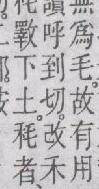 無爲毛。故有用
讀呼到切。改禾
秏。斁下土。秏者